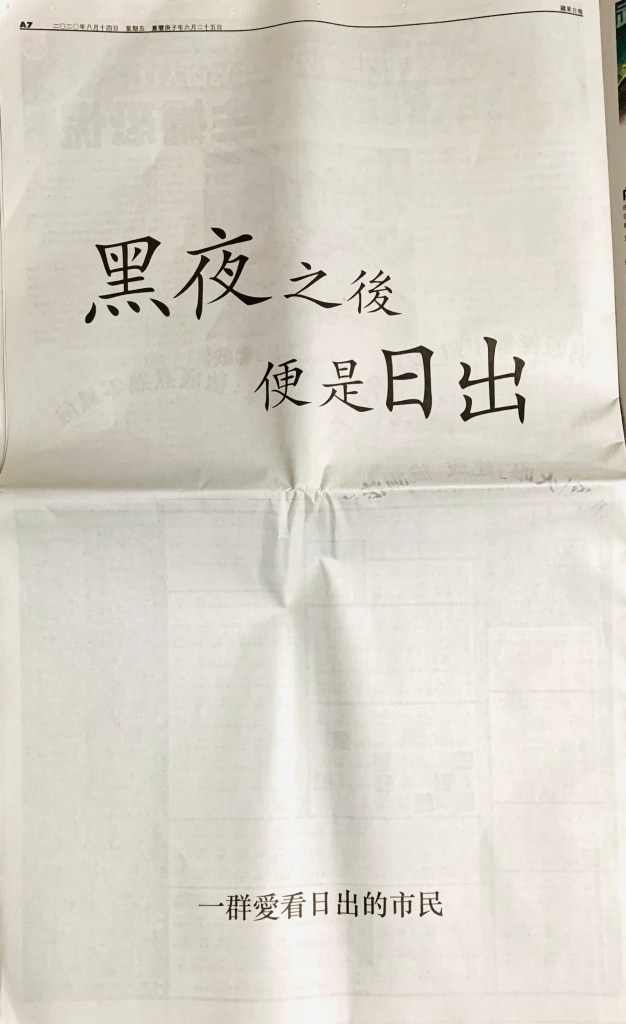 A7 二〇二〇年八月十四日 星期五 夏曆庚子年六月二十五日
蘋果日報
黑夜之後
便是日出
一群愛看日出的市民